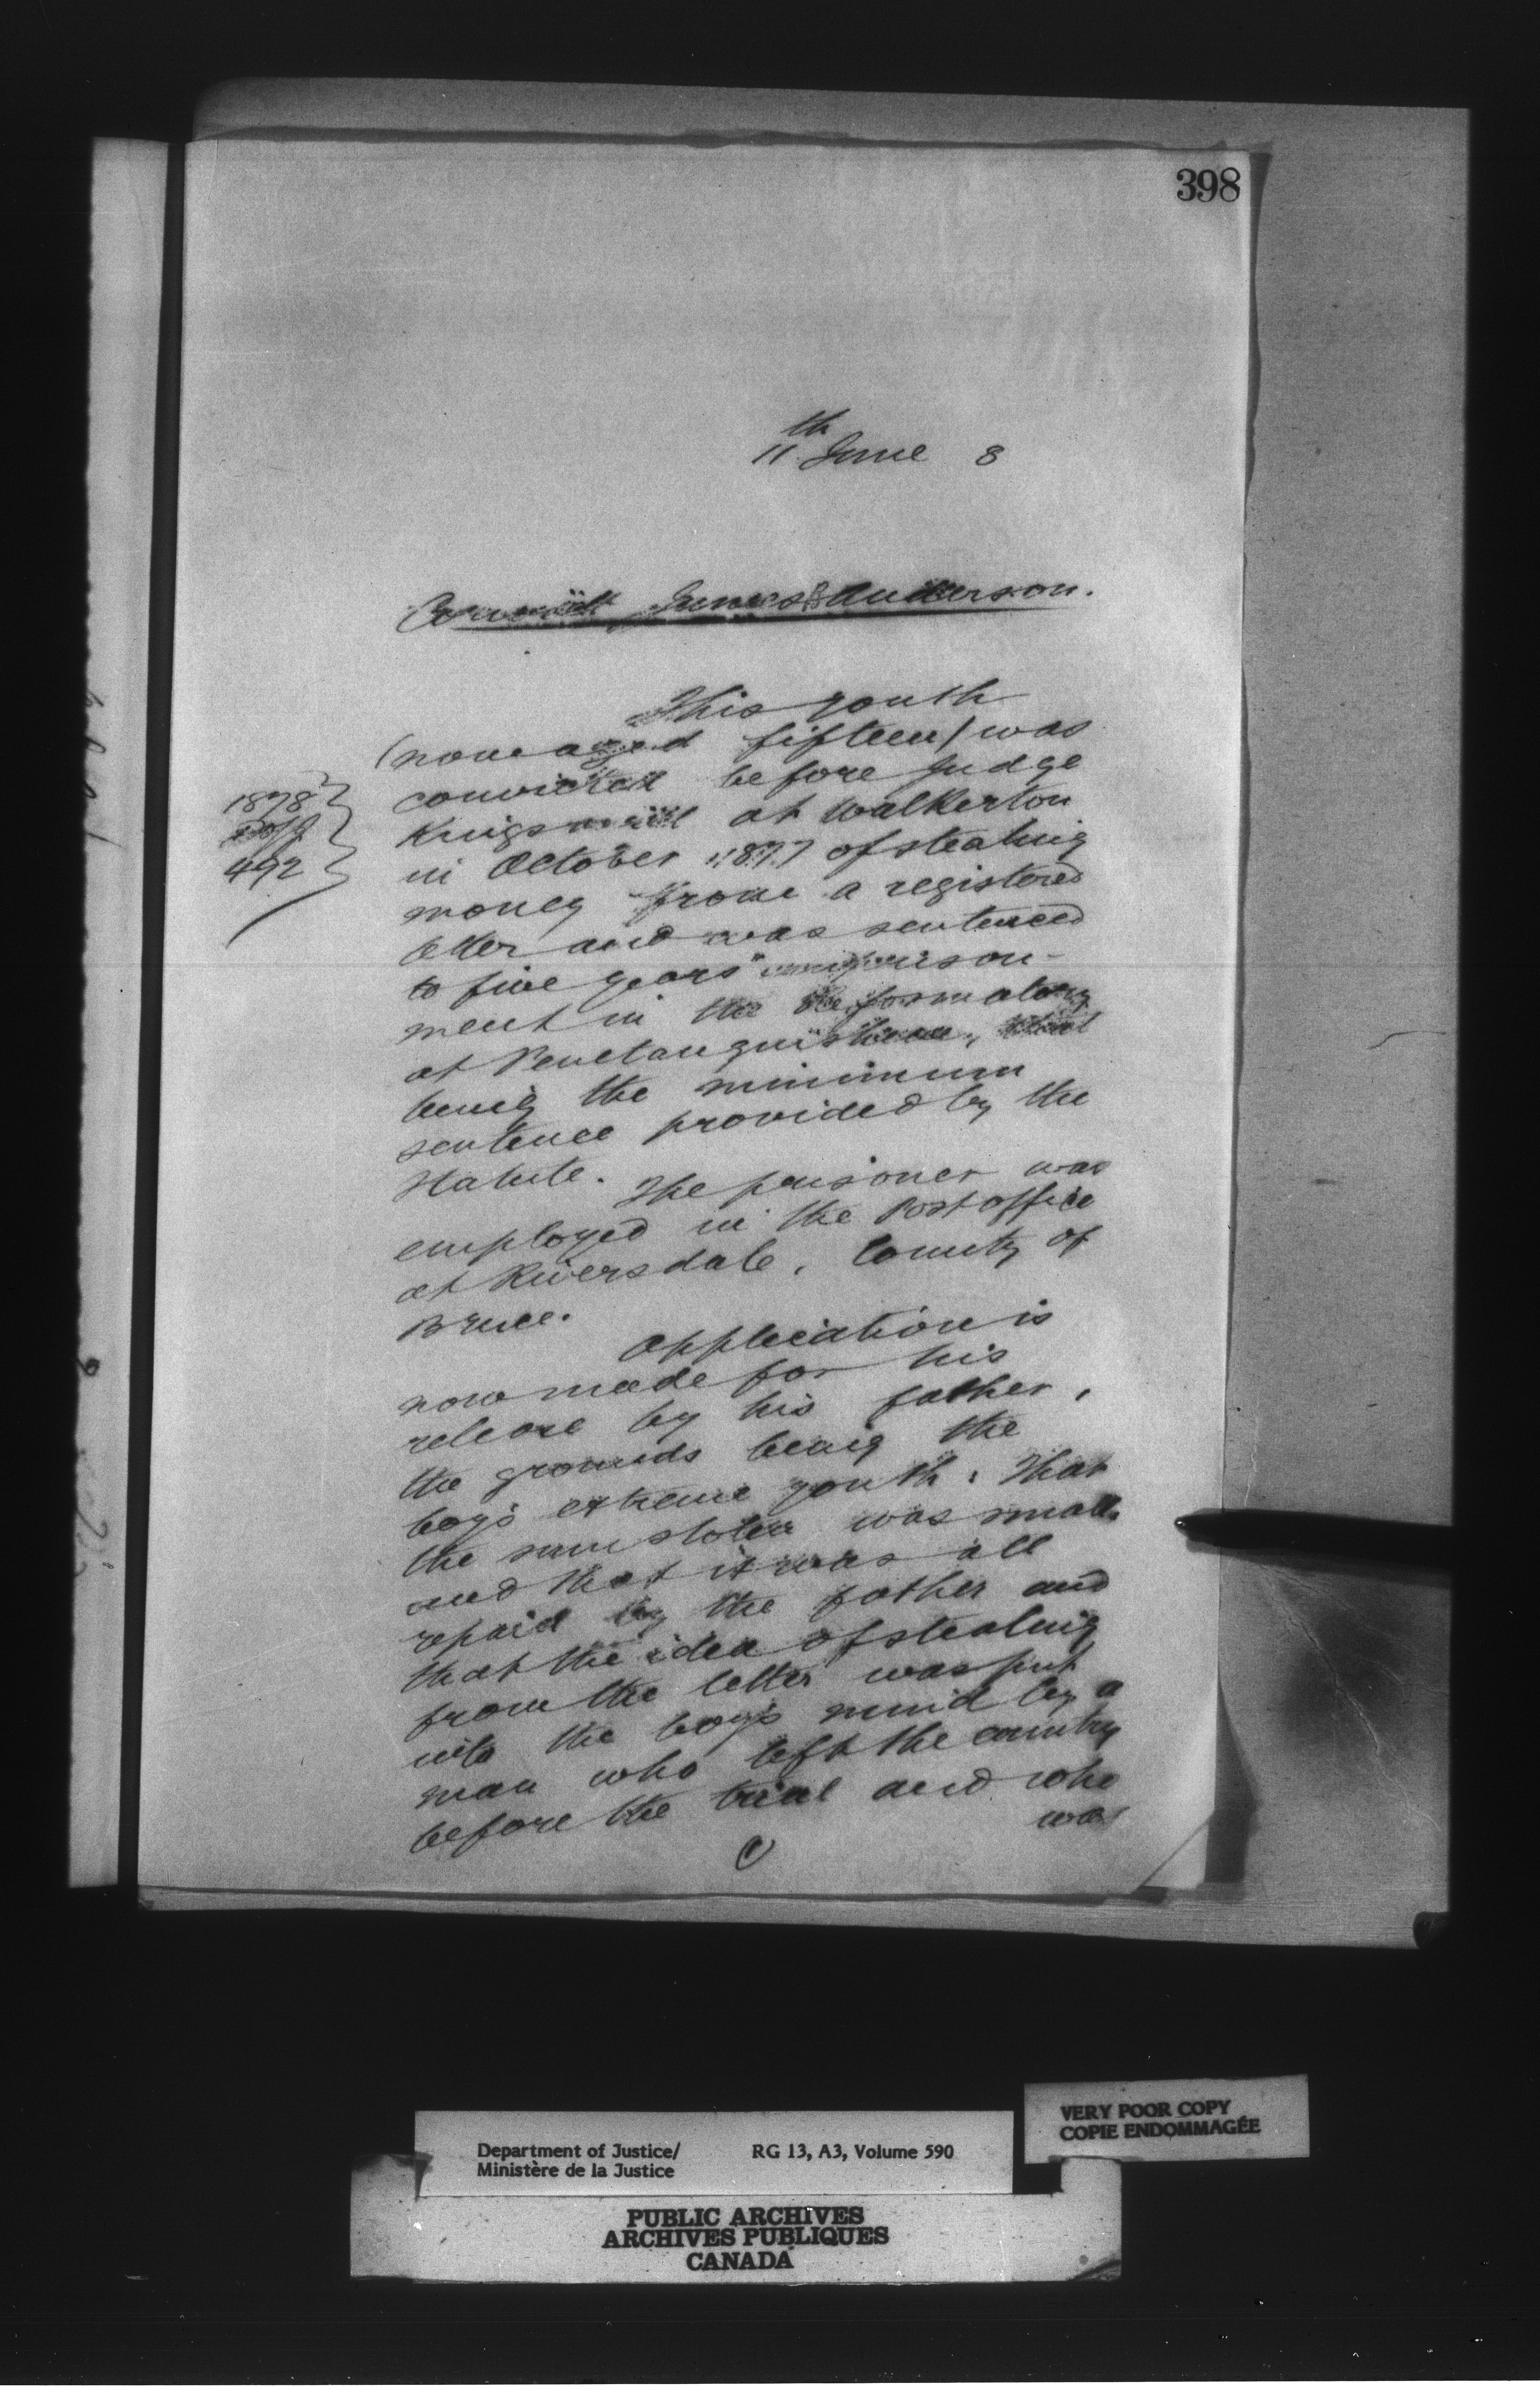 398
11th June 8
Convict James B Anderson.
This youth
(now aged fifteen) was
convicted before Judge
1878
Kingsmill at Walkerton
492
in October 1877 of stealing
money from a registered
letter and was sentenced
to five years' imprison-
ment in the Reformatory
at Penetanguishene, that
being the minimum
sentence provided by the
Statute. The prisoner was
employed in the Post office
at Riversdale, County of
Bruce.
Application is
now made for his
release by his father,
the grounds being the
boy's extreme youth, that
the sum stolen was small
and that it was all
repaid by the father and
that the idea of stealing
from the letter was put
into the boy's mind by a
man who left the country
before the trial and who
was
Department of Justice/
Ministère de la Justice
RG 13, A3, Volume 590
VERY POOR COPY
COPIE ENDOMMAGÉE
PUBLIC ARCHIVES
ARCHIVES PUBLIQUES
CANADA